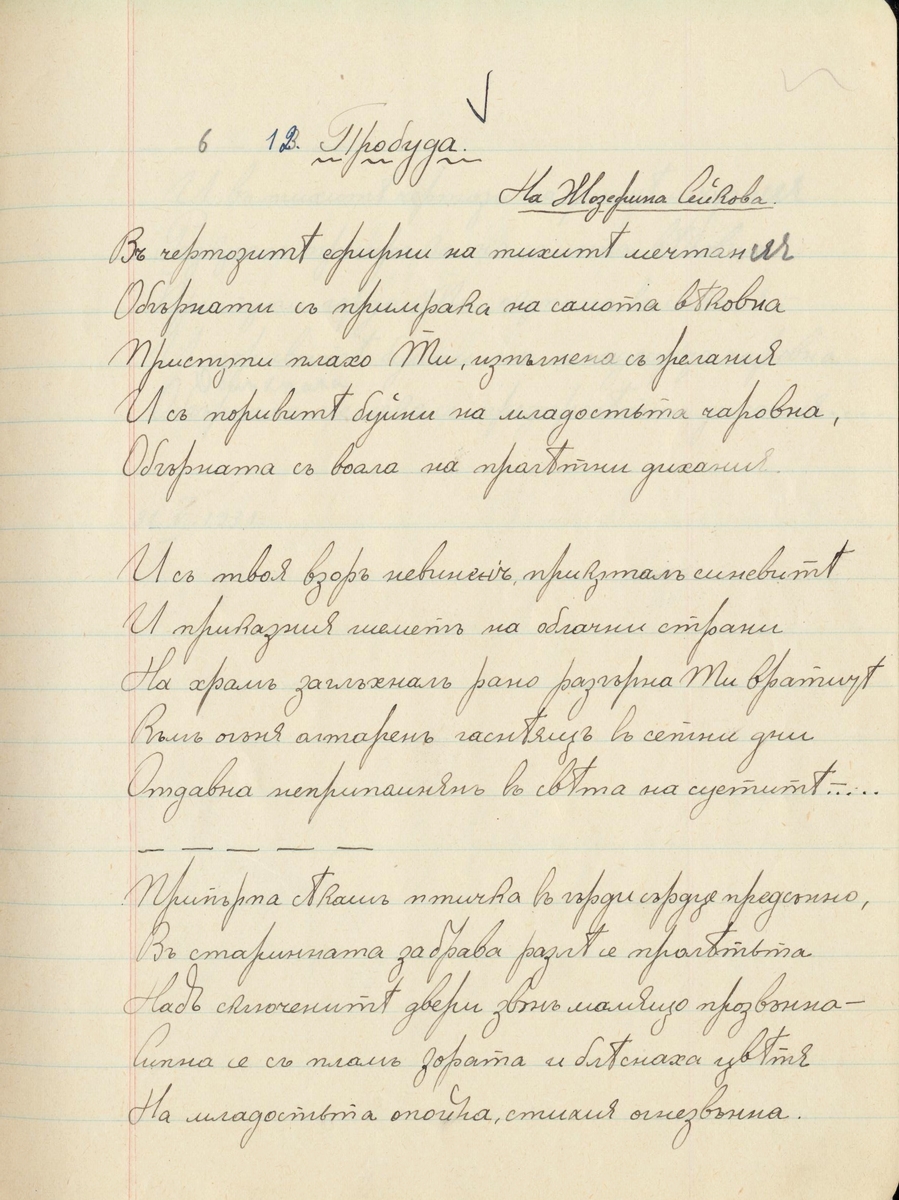 6 12. Пробуда.
На Жозефина Сейкова.
Въ чертозитѣ ефирни на тихитѣ мечтания
Обгърнати съ примрака на самота вѣковна
Пристѫпи плахо Ти, изпълнена съ желания
И съ поривитѣ буйни на младостьта чаровна,
Обгърната съ воала на пролѣтни дихания.
И съ твоя взоръ невиненъ, прикѫталъ синевитѣ
И приказния шеметъ на облачни страни
На храмъ заглъхналъ рано разгърна Ти вратитѣ
Къмъ огъня олтаренъ гаснѣящъ въ сетни дни
Отдавна неприпомнянъ въ свѣта на суетитѣ.....
— — — — —
Припърпа сѣкашъ птичка въ гърди сърдце предсънно,
Въ старинната забрава разлѣ се пролѣтьта
Надъ сключенитѣ двери звънъ мамящо прозвънна—
Сипна се съ пламъ зората и блѣснаха цвѣтя
На младостьта опойка, стихия огнезвънна.